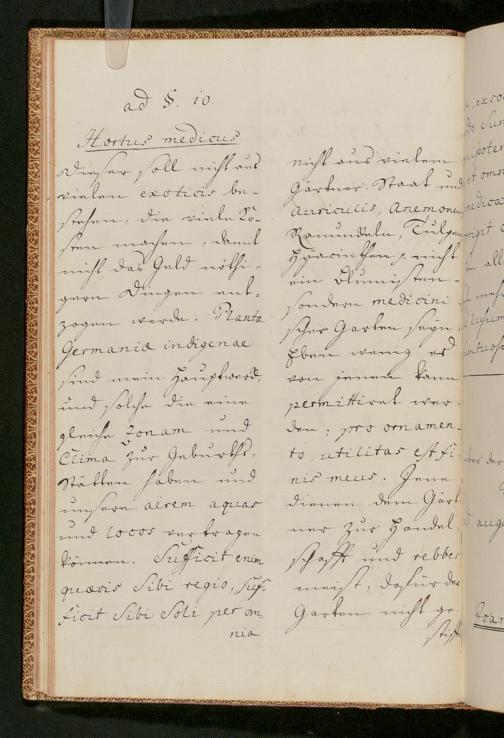 ad §. 10.
Hortus medicus
Dieser soll nicht aus
vielen exoticis be-
stehen, die viele Ko-
sten machen, damit
nicht das Geld nöthi-
gern Dingen ent-
zogen werde. Plantæ
Germaniæ indigenae
sind mein Hauptwerk,
und solche die eine
gleiche Zonam und
Clima zur Geburths-
Stätten haben und
unsere aërem aquas
und locos vertragen
können. Sufficit enim
quævis Sibi regio, Suf-
ficit Sibi Soli per om-
nia
nicht aus vielem
Gärtner-Staat und
Auriculis, Anemonen
Ranunculn, Tulpen
Hyacinthen, nicht
ein Blumisten-
sondern medicini
scher Garten seyn
Eben wenig
von jenen kann
permittiret wer-
den: pro ornamen-
to, utilitas est fi-
nis meus. Jene
dienen dem Gärt
ner zur Handel
schafft und
meist, dafür der
Garten nicht ge-
stift